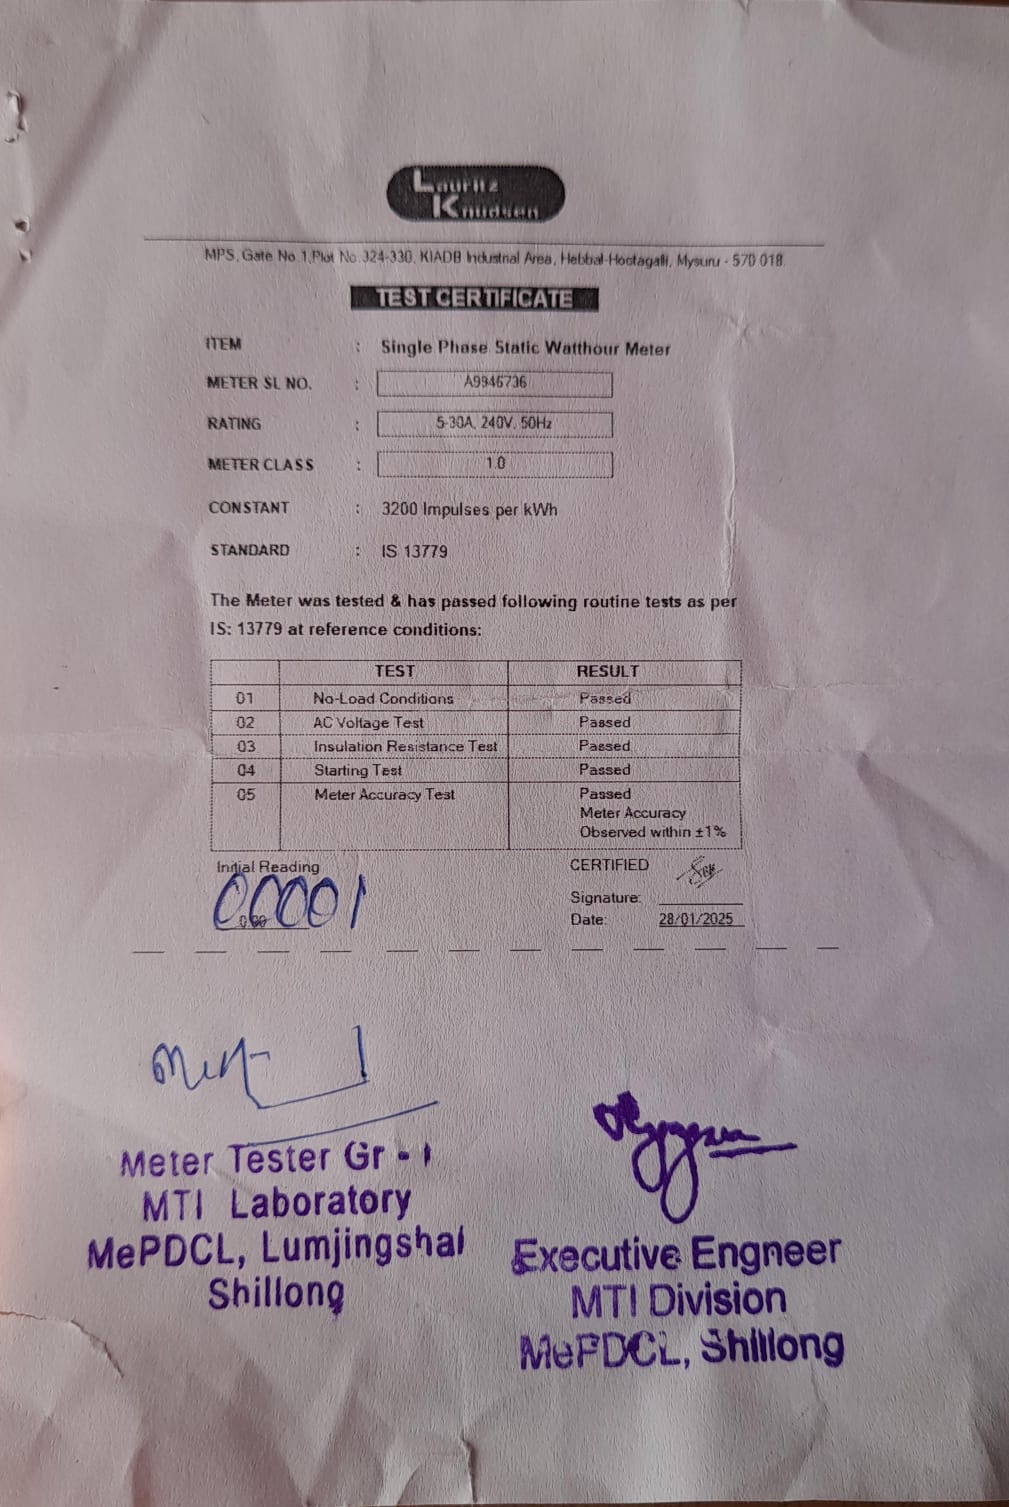 Lauritz
Knudsen
MPS, Gate No.1,Plot No.324-330, KIADB Industrial Area, Hebbal-Hootagalli, Mysuru - 570 018.
TEST CERTIFICATE
ITEM : Single Phase Static Watthour Meter
METER SL NO. : A9946736
RATING : 5-30A, 240V, 50Hz
METER CLASS : 1.0
CONSTANT : 3200 Impulses per kWh
STANDARD : IS 13779
The Meter was tested & has passed following routine tests as per
IS: 13779 at reference conditions:
TEST RESULT
01 No-Load Conditions Passed
02 AC Voltage Test Passed
03 Insulation Resistance Test Passed
04 Starting Test Passed
05 Meter Accuracy Test Passed
Meter Accuracy
Observed within ±1%
Initial Reading
00001
CERTIFIED
Signature:
Date: 28/01/2025
Meter Tester Gr - I
MTI Laboratory
MePDCL, Lumjingshai
Shillong
Executive Engneer
MTI Division
MePDCL, Shillong